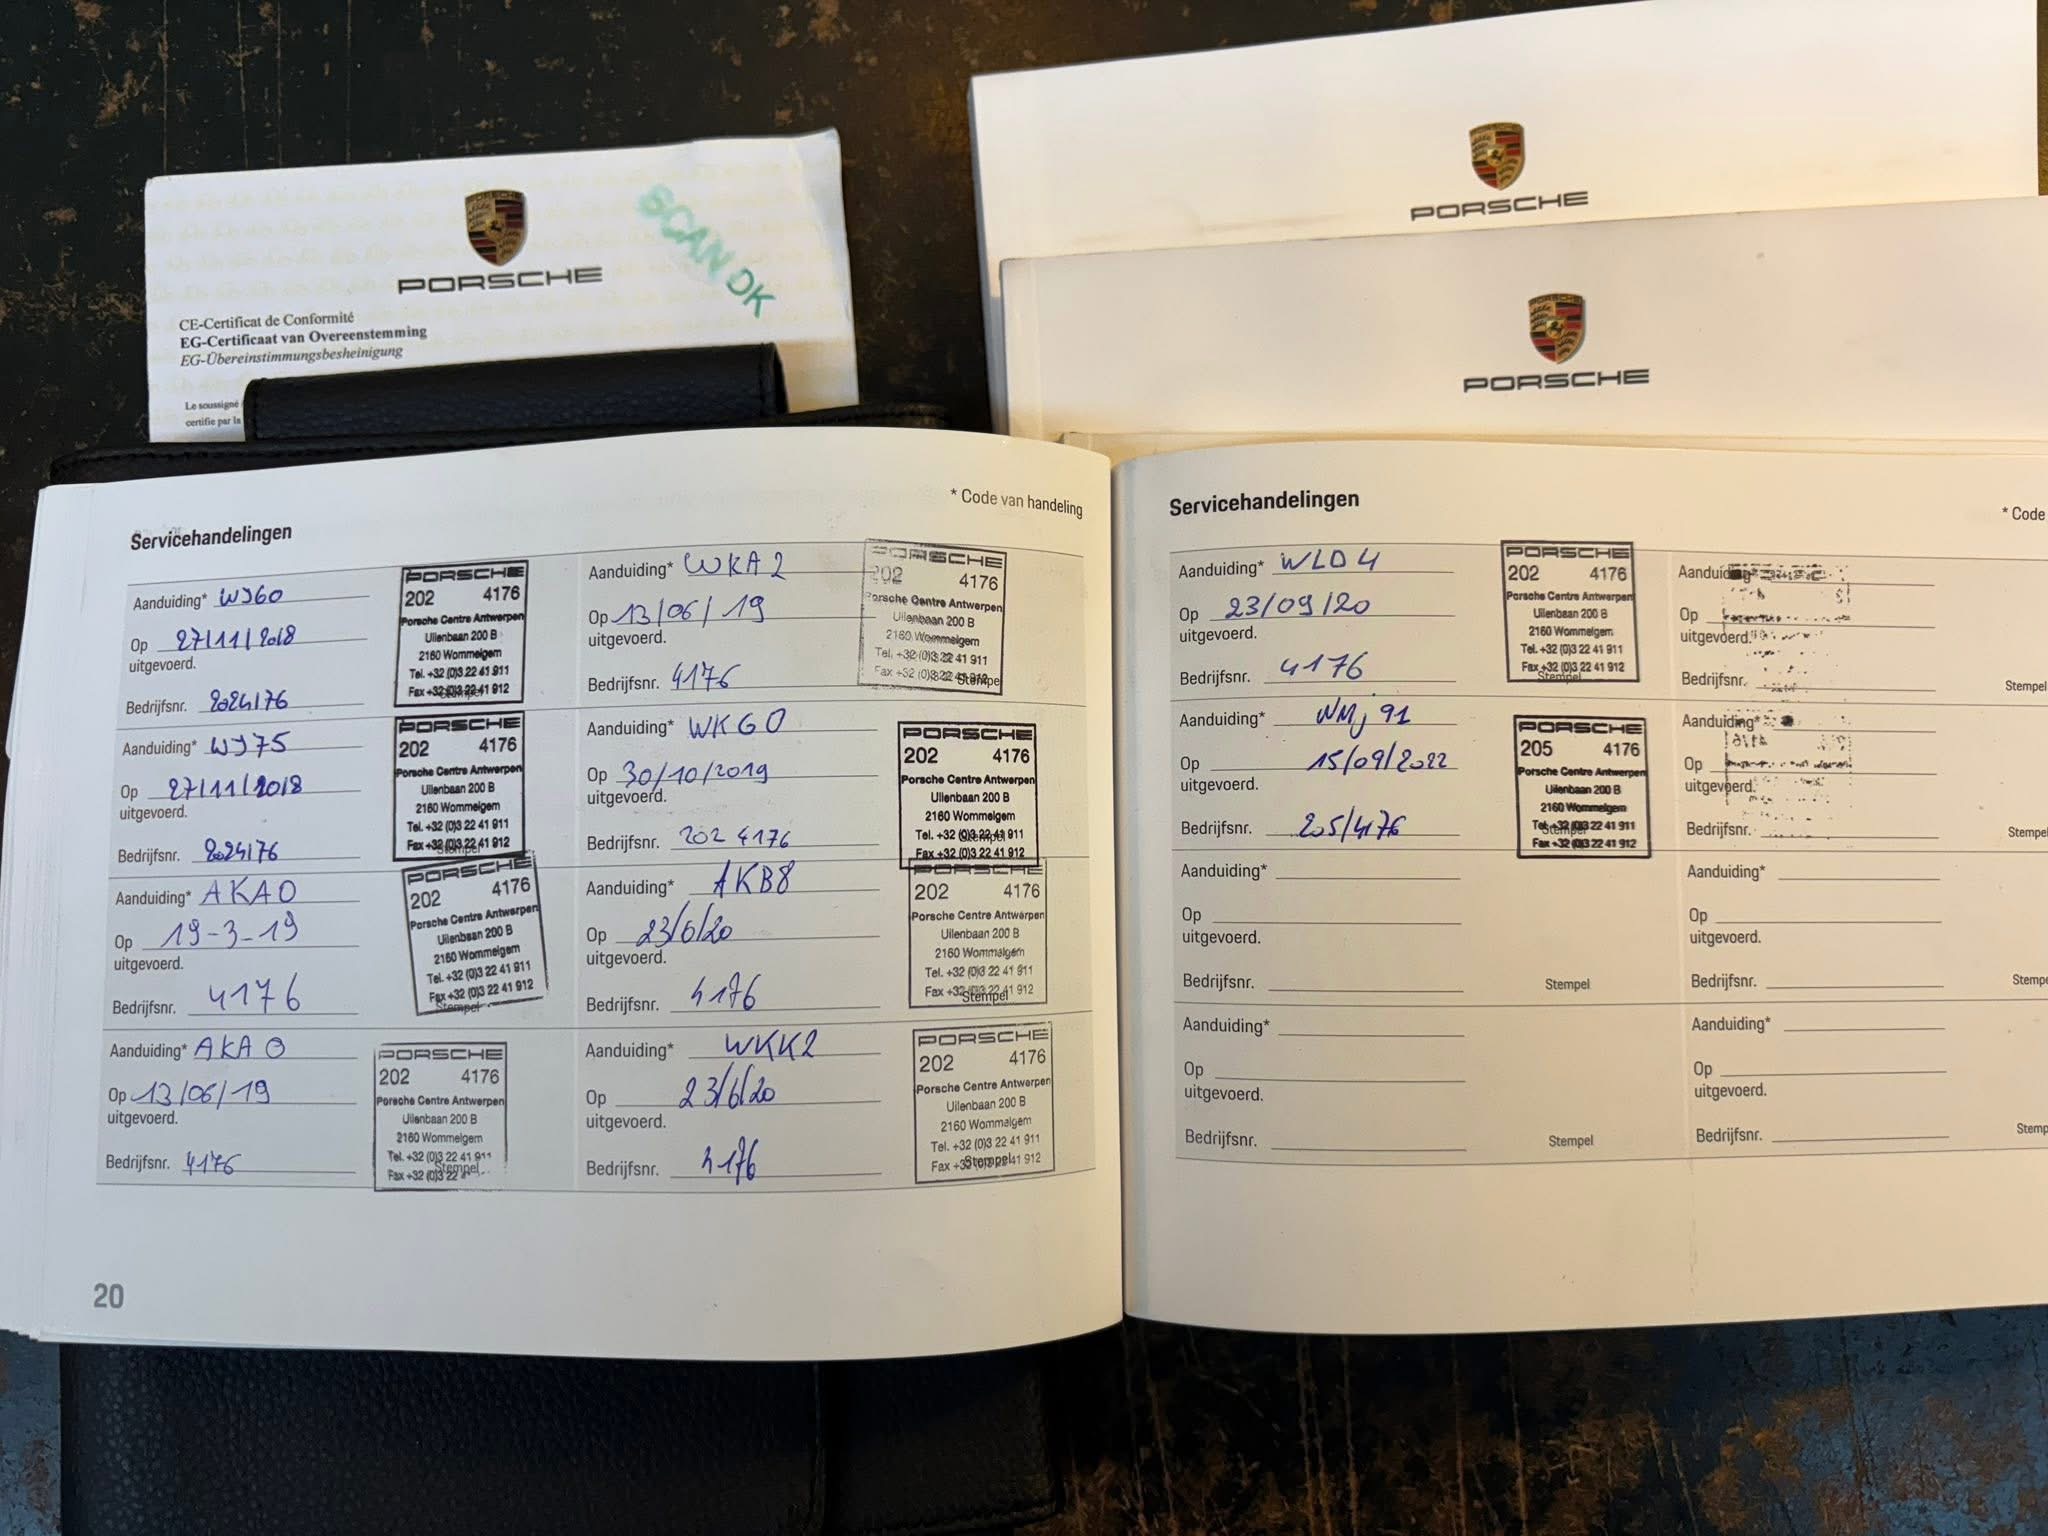 PORSCHE
SCAN OK
CE-Certificat de Conformité
EG-Certificaat van Overeenstemming
EG-Übereinstimmungsbesheinigung
Le soussigné
certifie par la
PORSCHE
PORSCHE
* Code van handeling
Servicehandelingen
Aanduiding* WJ60
Op 27/11/2018
uitgevoerd.
Bedrijfsnr. 2024176
PORSCHE
202 4176
Porsche Centre Antwerpen
Uilenbaan 200 B
2160 Wommelgem
Tel. +32 (0)3 22 41 911
Fax +32 (0)3 22 41 912
Stempel
Aanduiding* WJ75
Op 27/11/2018
uitgevoerd.
Bedrijfsnr. 2024176
PORSCHE
202 4176
Porsche Centre Antwerpen
Uilenbaan 200 B
2160 Wommelgem
Tel. +32 (0)3 22 41 911
Fax +32 (0)3 22 41 912
Stempel
Aanduiding* AKA0
Op 19-3-19
uitgevoerd.
Bedrijfsnr. 4176
PORSCHE
202 4176
Porsche Centre Antwerpen
Uilenbaan 200 B
2160 Wommelgem
Tel. +32 (0)3 22 41 911
Fax +32 (0)3 22 41 912
Stempel
Aanduiding* AKA0
Op 13/06/19
uitgevoerd.
Bedrijfsnr. 4176
PORSCHE
202 4176
Porsche Centre Antwerpen
Uilenbaan 200 B
2160 Wommelgem
Tel. +32 (0)3 22 41 911
Fax +32 (0)3 22 4
Stempel
Aanduiding* WKA2
Op 13/06/19
uitgevoerd.
Bedrijfsnr. 4176
PORSCHE
202 4176
Porsche Centre Antwerpen
Uilenbaan 200 B
2160 Wommelgem
Tel. +32 (0)3 22 41 911
Fax +32 (0)3 22 41 912
Stempel
Aanduiding* WKG0
Op 30/10/2019
uitgevoerd.
Bedrijfsnr. 202 4176
PORSCHE
202 4176
Porsche Centre Antwerpen
Uilenbaan 200 B
2160 Wommelgem
Tel. +32 (0)3 22 41 911
Fax +32 (0)3 22 41 912
Stempel
Aanduiding* AKB8
Op 23/6/20
uitgevoerd.
Bedrijfsnr. 4176
PORSCHE
202 4176
Porsche Centre Antwerpen
Uilenbaan 200 B
2160 Wommelgem
Tel. +32 (0)3 22 41 911
Fax +32 (0)3 22 41 912
Stempel
Aanduiding* WKK2
Op 23/6/20
uitgevoerd.
Bedrijfsnr. 4176
PORSCHE
202 4176
Porsche Centre Antwerpen
Uilenbaan 200 B
2160 Wommelgem
Tel. +32 (0)3 22 41 911
Fax +32 (0)3 22 41 912
Stempel
20
Servicehandelingen
* Code
Aanduiding* WLD4
Op 23/09/20
uitgevoerd.
Bedrijfsnr. 4176
PORSCHE
202 4176
Porsche Centre Antwerpen
Uilenbaan 200 B
2160 Wommelgem
Tel. +32 (0)3 22 41 911
Fax +32 (0)3 22 41 912
Stempel
Aanduiding* WMJ91
Op 15/09/2022
uitgevoerd.
Bedrijfsnr. 205/4176
PORSCHE
205 4176
Porsche Centre Antwerpen
Uilenbaan 200 B
2160 Wommelgem
Tel. +32 (0)3 22 41 911
Fax +32 (0)3 22 41 912
Stempel
Aanduiding*
Op
uitgevoerd.
Bedrijfsnr. Stempel
Aanduiding*
Op
uitgevoerd.
Bedrijfsnr. Stempel
Aanduiding*
Op
uitgevoerd.
Bedrijfsnr. Stempel
Aanduiding*
Op
uitgevoerd.
Bedrijfsnr. Stempel
Aanduiding*
Op
uitgevoerd.
Bedrijfsnr. Stempe
Aanduiding*
Op
uitgevoerd.
Bedrijfsnr. Stemp